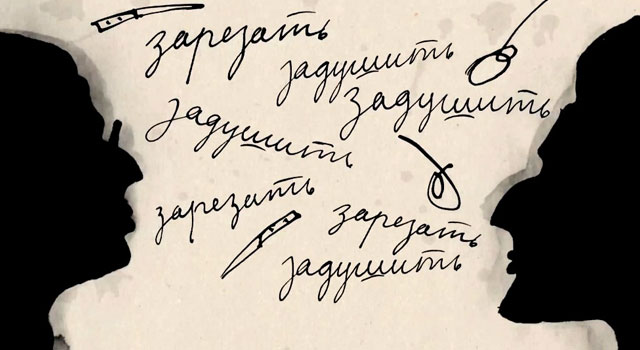 зарезать
задушить
задушить
задушить
зарезать
зарезать
задушить